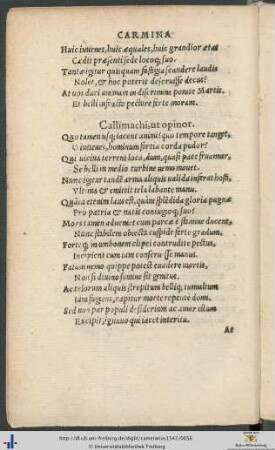 CARMINA
Huic iuuenes, huic æquales, huic grandior ætas
Cædit præsenti sede locoq; suo.
Tantæ igitur quisquam fastigia scandere laudis
Nolet, & hoc poterit deseruisse decus?
At uos dari animam in discrimine ponite Martis,
Et belli infracto pectore ferte moram.
Callimachi, ut opinor.
Quo tamen usq; iacent animi? quo tempore tanget,
O iuuenes, hominum fortia corda pudor?
Qui uicina terrent loca, dum, quasi pace fruamur,
Se belli in medio turbine nemo mouet.
Nunc igitur tandē arma aliquis ualida inferat hosti,
Vltima & emittit tela labante manu.
Quàm etenim laus est, quàm splēdida gloria pugnæ
Pro patria & natis coniugeq; suo?
Mors tamen adueniet cum parcæ è stamine ducent,
Nunc stabilem abiecta cuspide ferte gradum.
Forteq; in umbonem clipei contrudite pectus,
Incipient cum iam conseruisse manus.
Fatum nemo quippe potest euadere mortis,
Non si diuino semine sit genitus.
Ac telorum aliquis strepitum belliq; tumultum
Iam fugiens, rapitur morte repente domi.
Sed non per populi desiderium ac amor illum
Excipit, ignauo qui iacet interitu.
At
http://dl.ub.uni-freiburg.de/diglit/camerarius1542/0056
© Universitätsbibliothek Freiburg
Baden-Württemberg